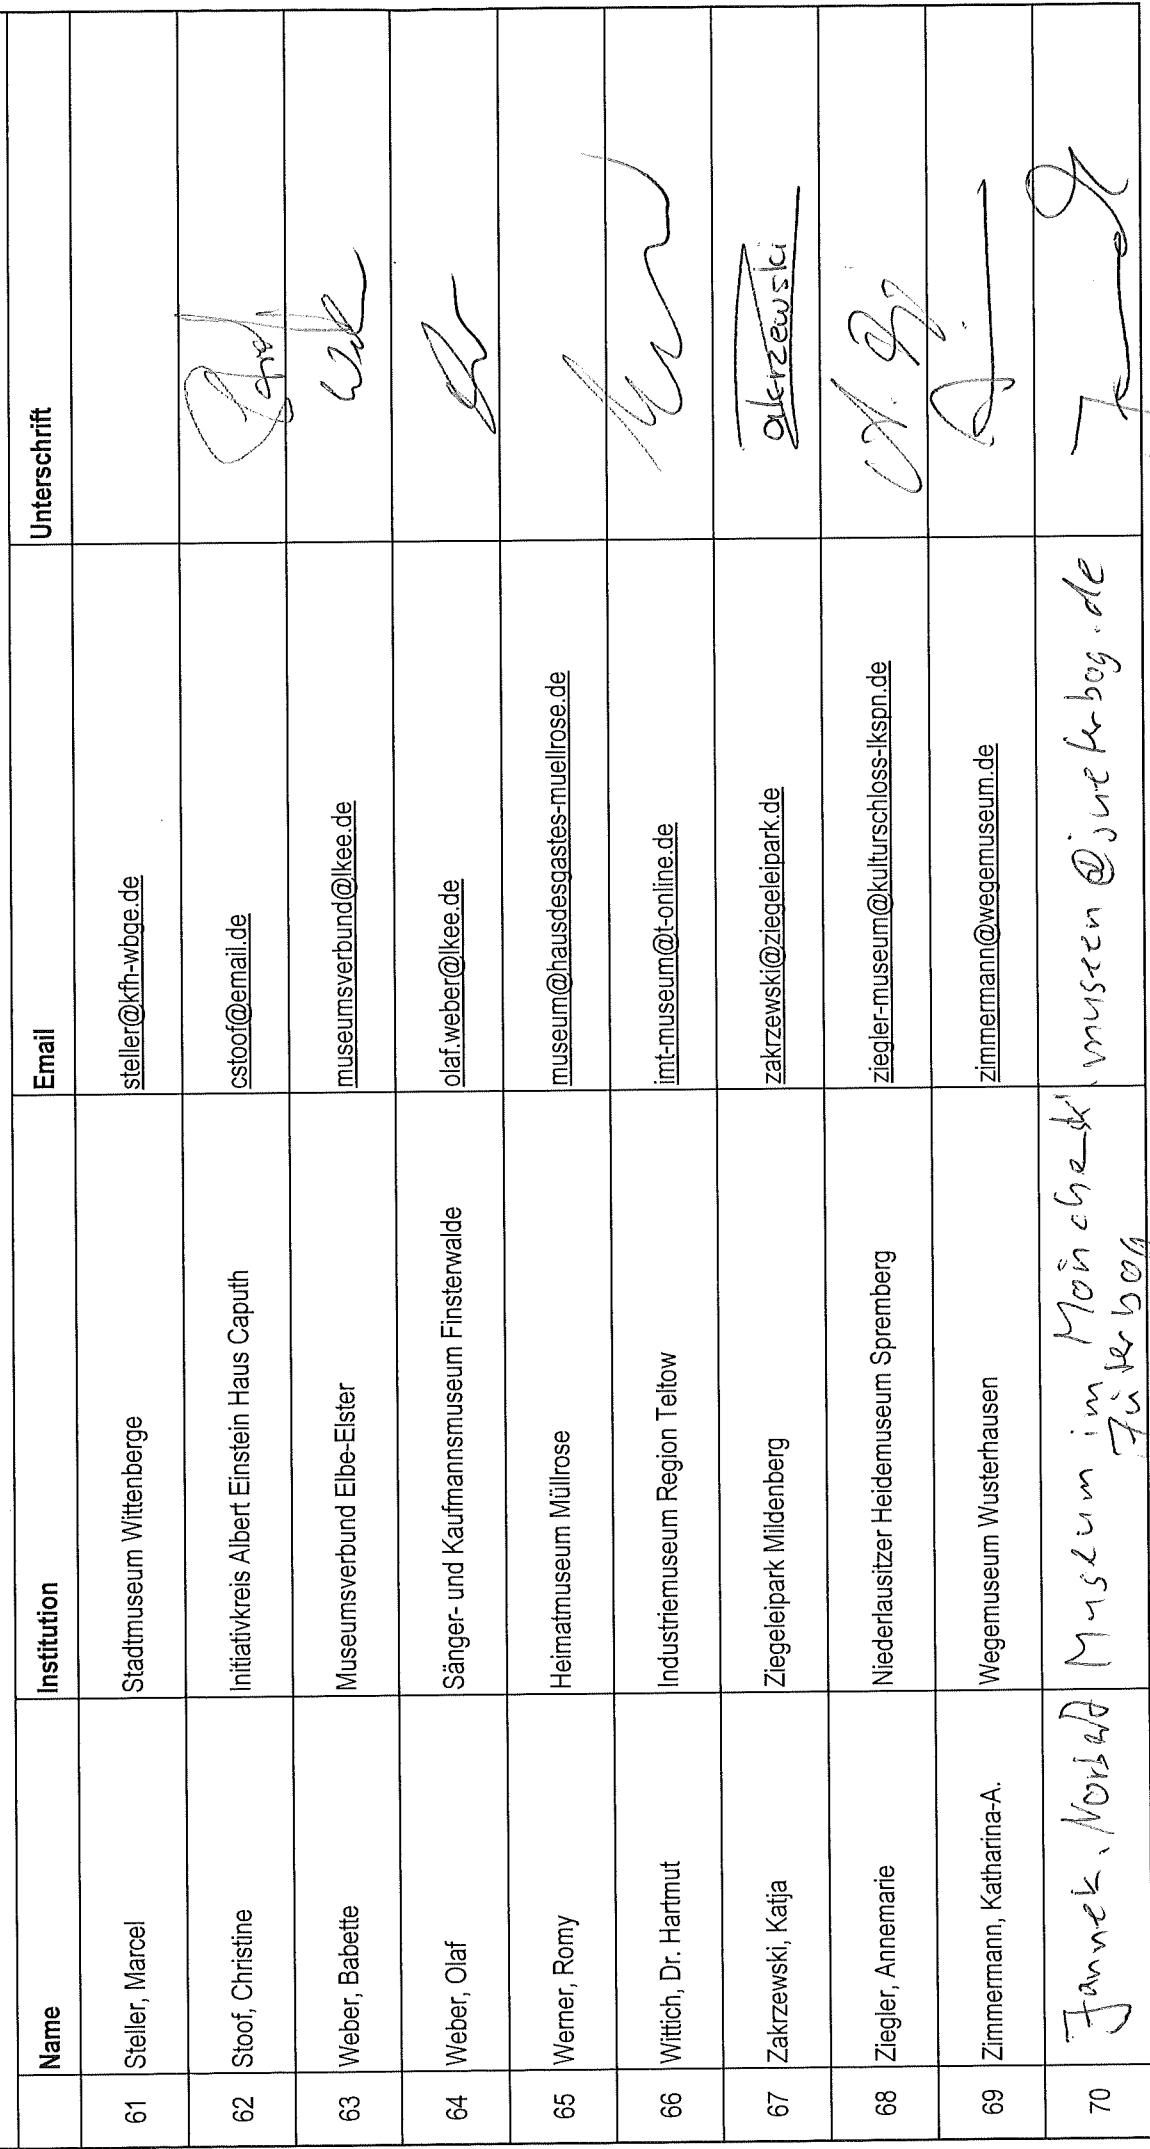 Name Institution Email Unterschrift
61 Steller, Marcel Stadtmuseum Wittenberge steller@kfh-wbge.de
62 Stoof, Christine Initiativkreis Albert Einstein Haus Caputh cstoof@email.de
63 Weber, Babette Museumsverbund Elbe-Elster museumsverbund@lkee.de
64 Weber, Olaf Sänger- und Kaufmannsmuseum Finsterwalde olaf.weber@lkee.de
65 Werner, Romy Heimatmuseum Müllrose museum@hausdesgastes-muellrose.de
66 Wittich, Dr. Hartmut Industriemuseum Region Teltow imt-museum@t-online.de
67 Zakrzewski, Katja Ziegeleipark Mildenberg zakrzewski@ziegeleipark.de Zakrzewski
68 Ziegler, Annemarie Niederlausitzer Heidemuseum Spremberg ziegler-museum@kulturschloss-lkspn.de
69 Zimmermann, Katharina-A. Wegemuseum Wusterhausen zimmermann@wegemuseum.de
70 Jannek, Norbert Museum im museen@jueterbog.de
Jüterbog